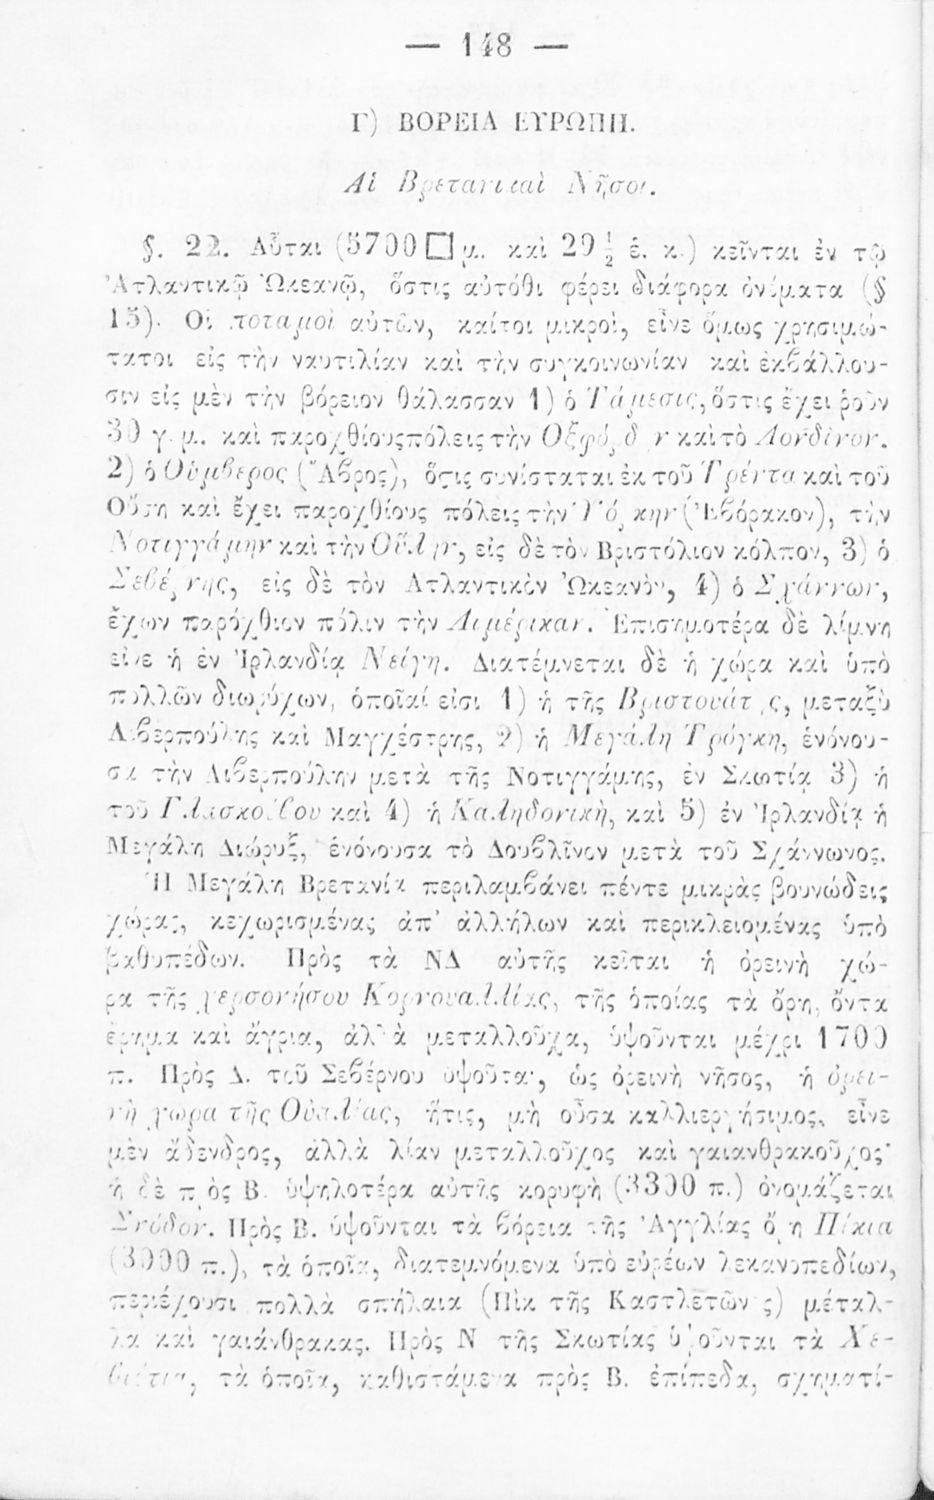 — 148 —
Γ) ΒΟΡΕΙΑ ΕΥΡΩΠΗ.
Αἱ Βρετανικαὶ Νῆσοι.
§. 22. Αὗται (5700 □ μ. καὶ 29 ½ ἑ. κ.) κεῖνται ἐν τῷ
Ἀτλαντικῷ Ὠκεανῷ, ὅστις αὐτόθι φέρει διάφορα ὀνόματα (§
15). Οἱ ποταμοὶ αὐτῶν, καίτοι μικροὶ, εἶνε ὅμως χρησιμώ-
τατοι εἰς τὴν ναυτιλίαν καὶ τὴν συγκοινωνίαν καὶ ἐκβάλλου-
σιν εἰς μὲν τὴν βόρειον θάλασσαν 1) ὁ Τάμεσις, ὅστις ἔχει ῥοῦν
30 γ. μ. καὶ παροχθίους πόλεις τὴν Ὀξφόρδην καὶ τὸ Λονδῖνον.
2) ὁ Οὔμβερος (Ἄβρος), ὅστις συνίσταται ἐκ τοῦ Τρέντα καὶ τοῦ
Οὔση καὶ ἔχει παροχθίους πόλεις τὴν Ὑόρκην (Ἐβόρακον), τὴν
Νοτιγγάμην καὶ τὴν Οὔλην, εἰς δὲ τὸν Βριστόλιον κόλπον, 3) ὁ
Σεβέρνης, εἰς δὲ τὸν Ατλαντικὸν Ὠκεανὸν, 4) ὁ Σχάννων,
ἔχων παρόχθιον πόλιν τὴν Λιμέρικαν. Ἐπισημοτέρα δὲ λίμνη
εἶνε ἡ ἐν Ἰρλανδίᾳ Νείγη. Διατέμνεται δὲ ἡ χώρα καὶ ὑπὸ
πολλῶν διωρύχων, ὁποῖαί εἰσι 1) ἡ τῆς μεταξὺ
Λιβερπούλης καὶ Μαγχέστρης, 2) ἡ Μεγάλη Τρόγκη, ἑνόνου-
σα τὴν Λιβερπούλην μετὰ τῆς Νοτιγγάμης, ἐν Σκωτίᾳ 3) ἡ
τοῦ Γλασκοβου καὶ 4) ἡ Καληδονικὴ, καὶ 5) ἐν Ἰρλανδίᾳ ἡ
Μεγάλη Διώρυξ, ἑνόνουσα τὸ Δουβλῖνον μετὰ τοῦ Σχάννωνος.
Ἡ Μεγάλη Βρετανία περιλαμβάνει πέντε μικρὰς βουνώδεις
χώρας, κεχωρισμένας ἀπ' ἀλλήλων καὶ περικλειομένας ὑπὸ
βαθυπέδων. Πρὸς τὰ ΝΔ αὐτῆς κεῖται ἡ ὀρεινὴ χώ-
ρα τῆς χερσονήσου Κορνουαλλίας, τῆς ὁποίας τὰ ὄρη, ὄντα
ἔρημα καὶ ἄγρια, ἀλλὰ μεταλλοῦχα, ὑψοῦνται μέχρι 1700
π. Πρὸς Δ. τοῦ Σεβέρνου ὑψοῦται, ὡς ὀρεινὴ νῆσος, ἡ ὀρει-
νὴ χώρα τῆς Οὐαλίας, ἥτις, μὴ οὖσα καλλιεργήσιμος, εἶνε
μὲν ἄδενδρος, ἀλλὰ λίαν μεταλλοῦχος καὶ γαιανθρακοῦχος·
ἡ δὲ πρὸς Β. ὑψηλοτέρα αὐτῆς κορυφὴ (3300 π.) ὀνομάζεται
Σνόδον. Πρὸς Β. ὑψοῦνται τὰ βόρεια τῆς Ἀγγλίας ὄρη Πίκια
(3000 π.), τὰ ὁποῖα, διατεμνόμενα ὑπὸ εὐρέων λεκανοπεδίων,
περιέχουσι πολλὰ σπήλαια (Πὶκ τῆς Καστλετῶνος) μέταλ-
λα καὶ γαιάνθρακας. Πρὸς Ν τῆς Σκωτίας ὑψοῦνται τὰ Χε-
βιότια, τὰ ὁποῖα, καθιστάμενα πρὸς Β. ἐπίπεδα, σχηματί-